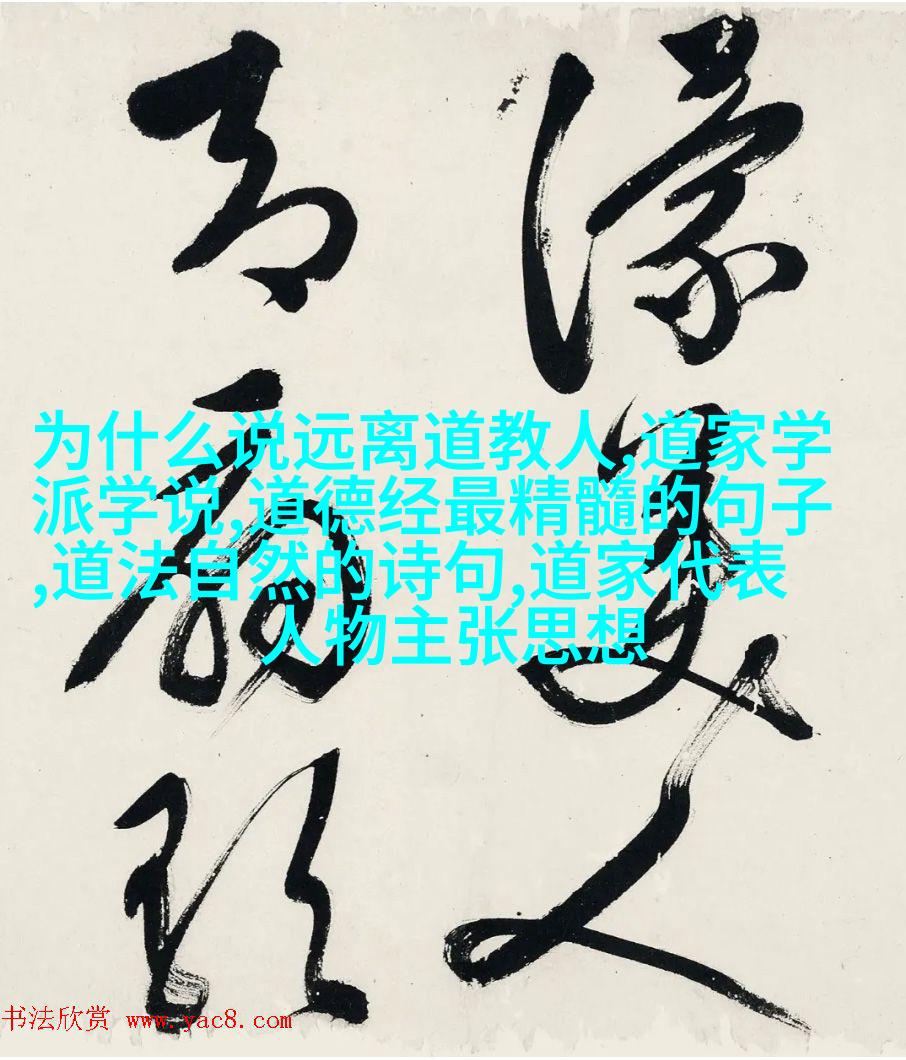 濛
美
人
为什么说远离道教人,道家学
派学说,道德经最精髓的句子
,道法自然的诗句,道家代表
人物主张思想
书法欣赏 www.yac8.com